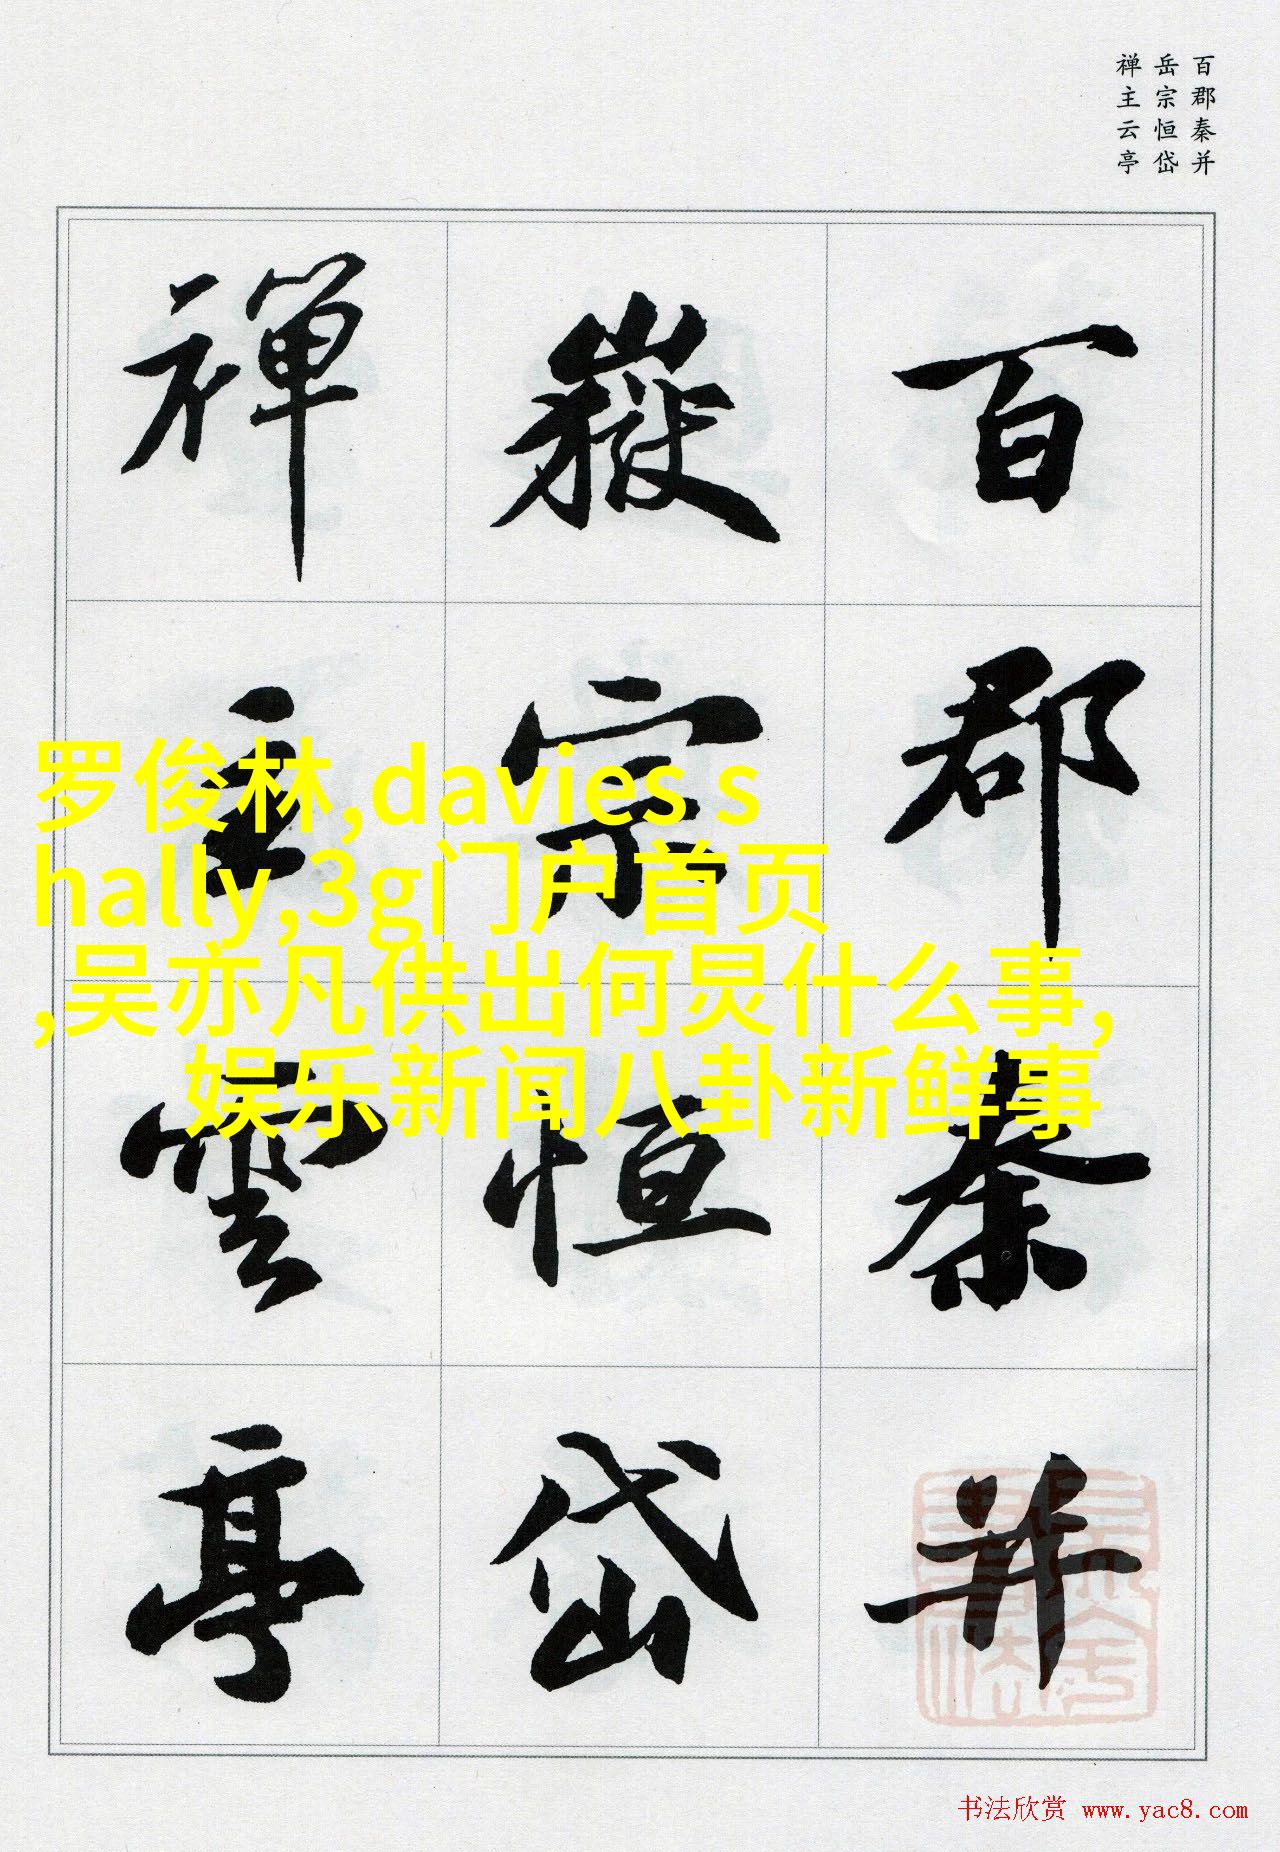 百郡秦并
岳宗恒岱
禅主云亭
百郡秦并
嶽宗恒岱
禅主雲亭
罗俊林,davies s
hally,3g门户首页
,吴亦凡供出何炅什么事,
娱乐新闻八卦新鲜事
书法欣赏 www.yac8.com